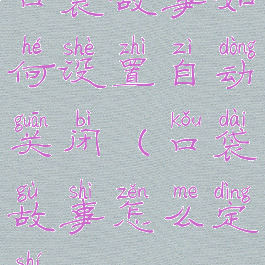 口袋故事如
hé shè zhì zì dòng
何设置自动
guān bì kǒu dài
关闭（口袋
gù shì zěn me dìng
故事怎么定
shí